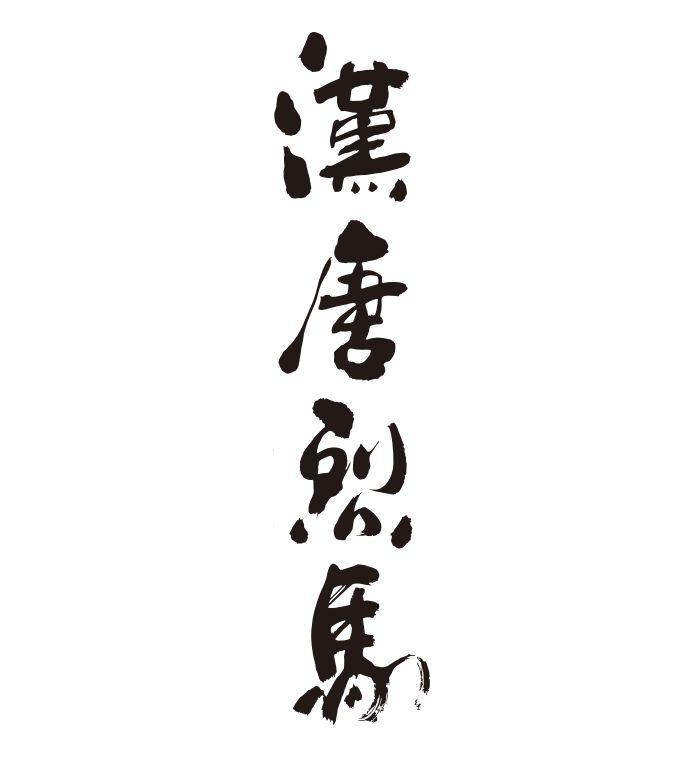 漢唐烈馬